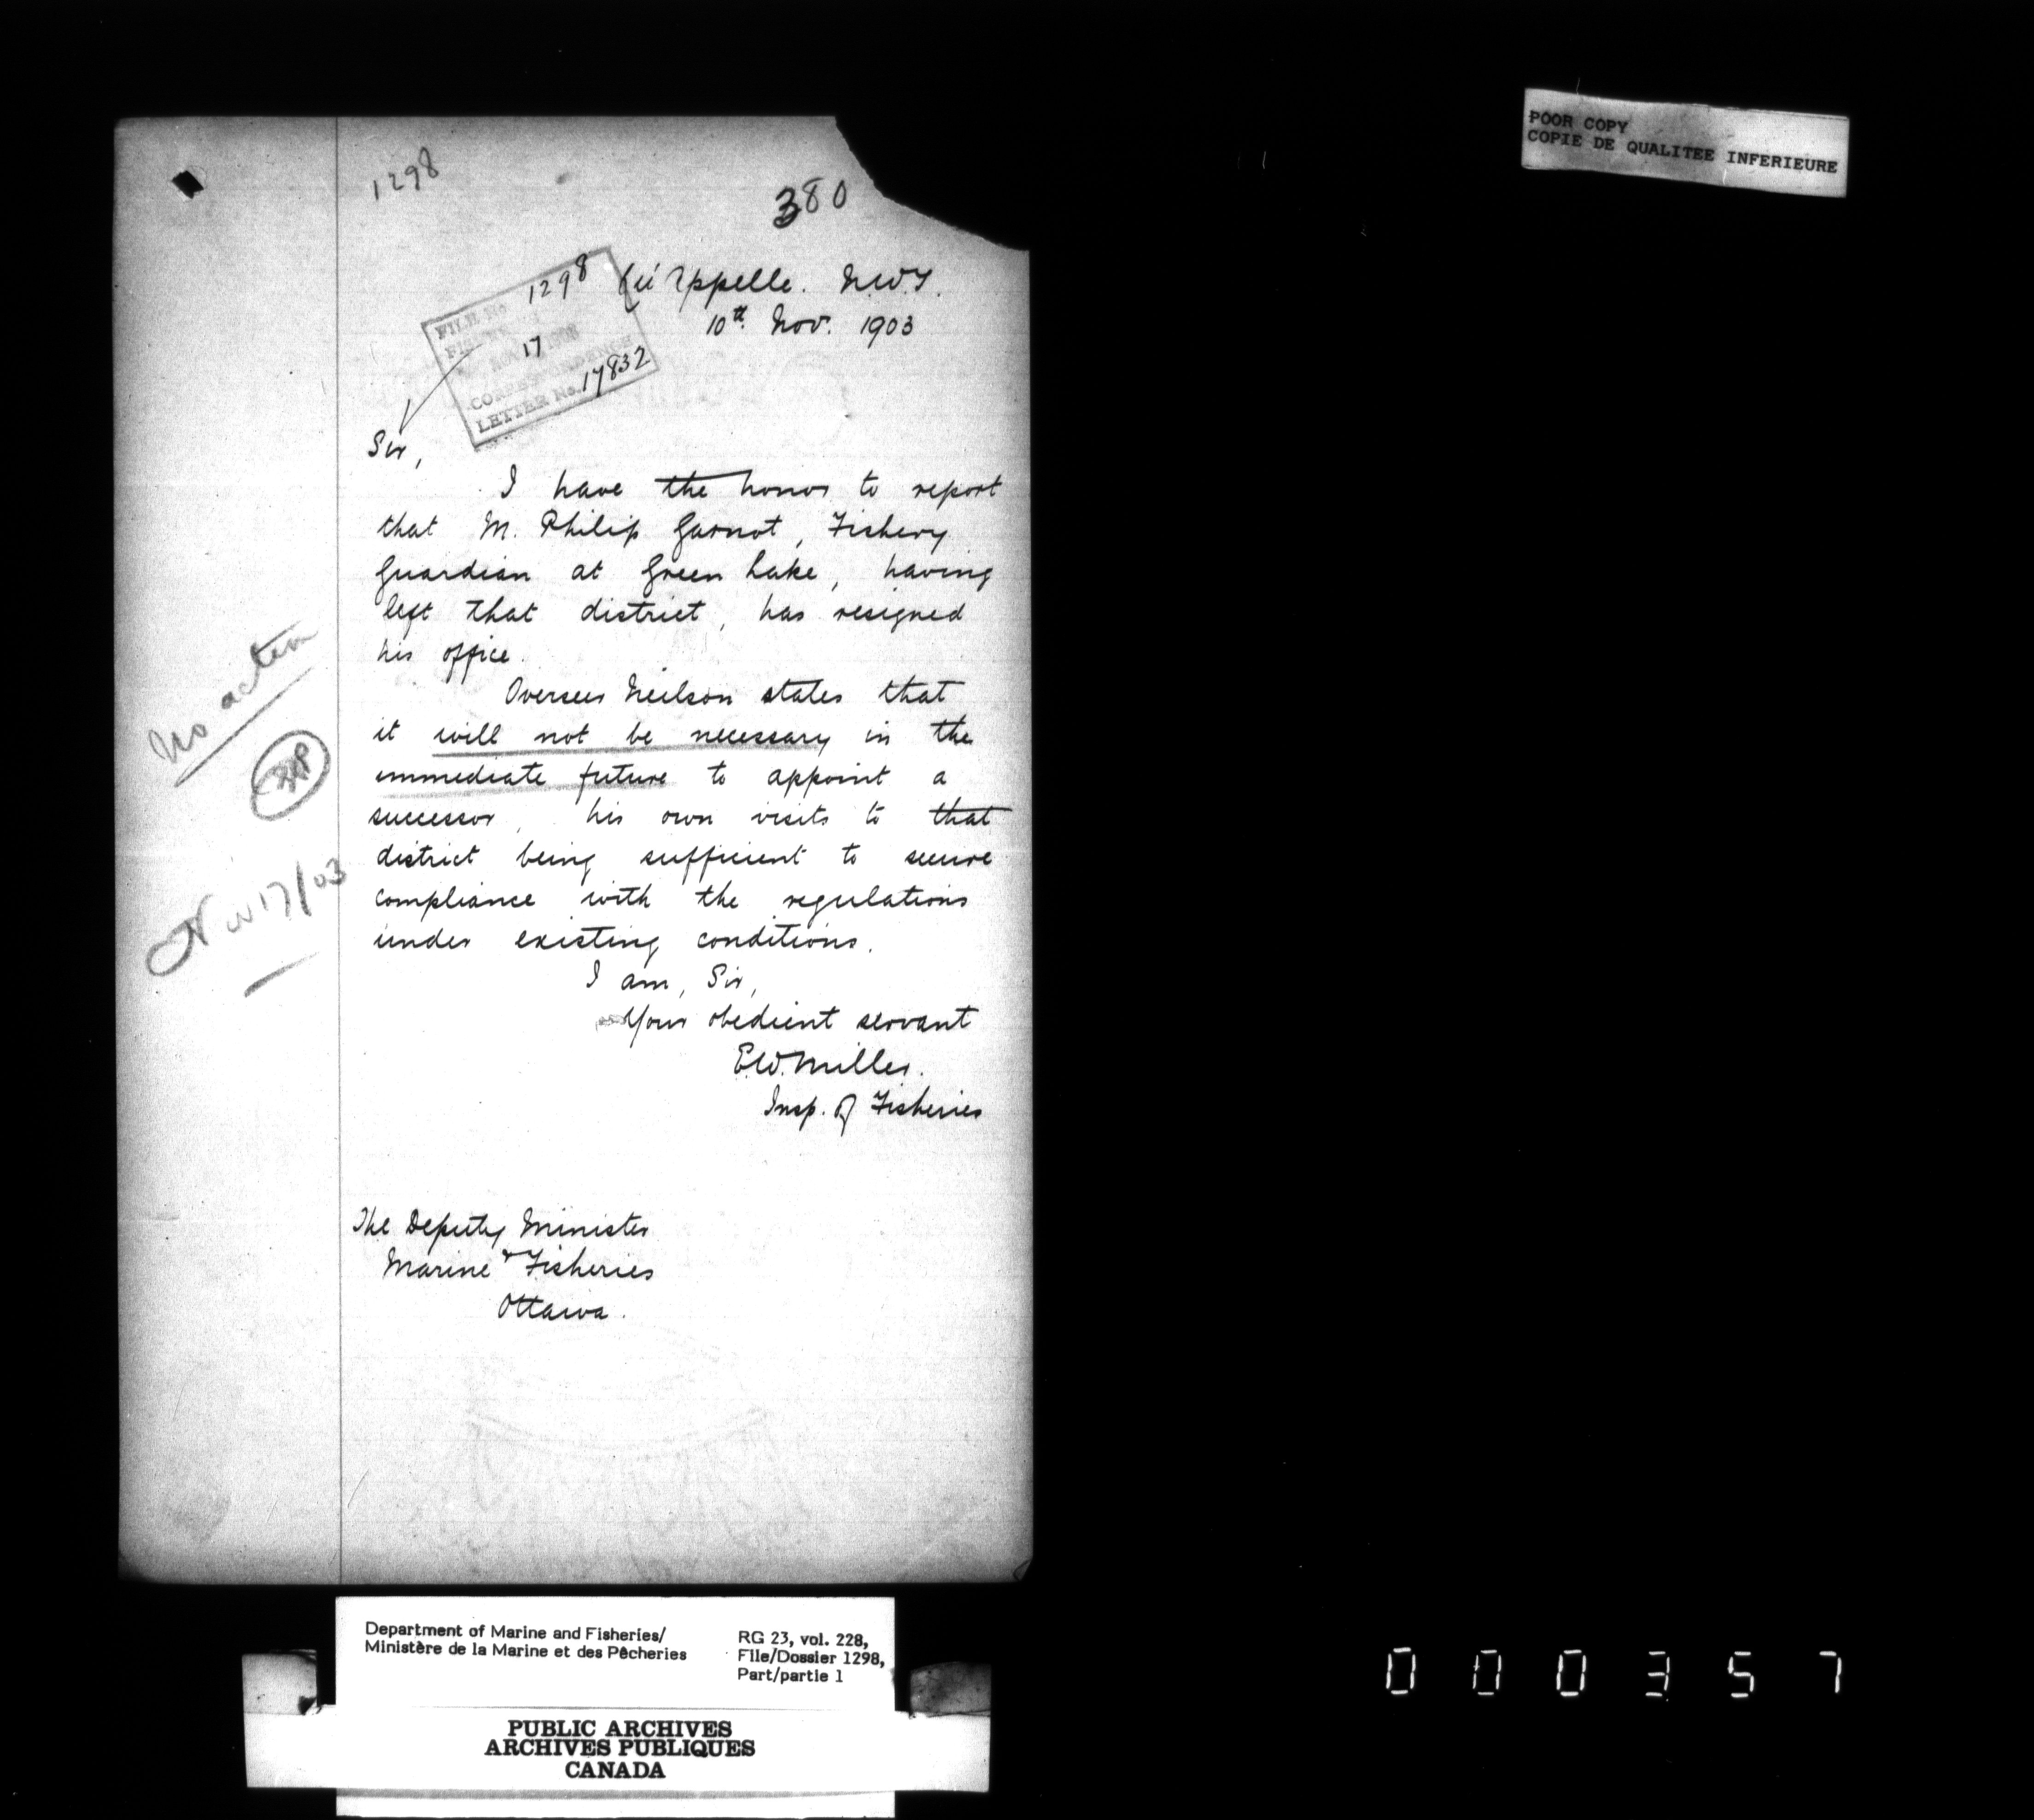 POOR COPY
COPIE DE QUALITEE INFERIEURE
1298
380
Qu'Appelle. N.W.T.
10th. Nov. 1903
FILE No 1298
NOV 17 1903
CORRESPONDENCE
LETTER No. 17832
Sir,
I have the honor to report
that M. Philip Garnot, Fishery
Guardian at Green Lake, having
left that district, has resigned
his office.
Overseer Neilson states that
it will not be necessary in the
immediate future to appoint a
successor, his own visits to that
district being sufficient to secure
compliance with the regulations
under existing conditions.
I am, Sir,
Your obedient servant
E.W. Miller.
Insp. of Fisheries
No action
Nov 17/03
The Deputy Minister
Marine & Fisheries
Ottawa.
Department of Marine and Fisheries/
Ministère de la Marine et des Pêcheries
RG 23, vol. 228,
File/Dossier 1298,
Part/partie 1
PUBLIC ARCHIVES
ARCHIVES PUBLIQUES
CANADA
000357